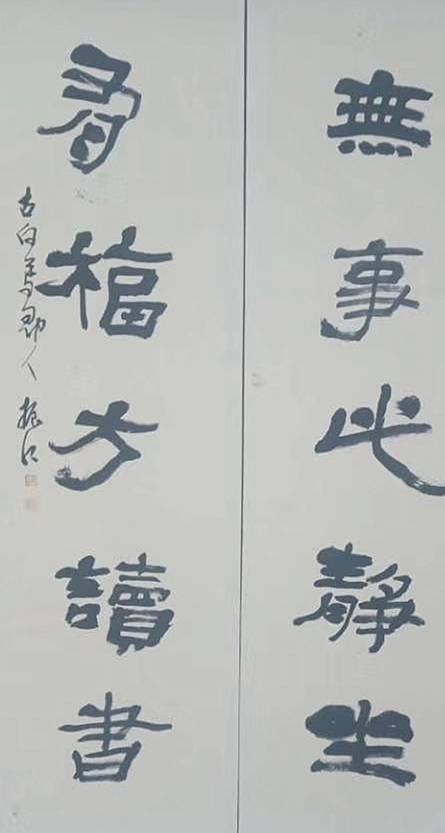 無事此靜坐
有福方讀書
古白馬郡人 振江